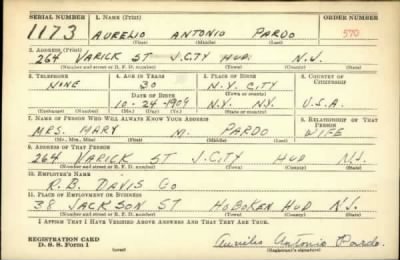 SERIAL NUMBER 1. NAME (Print) ORDER NUMBER
1173 AURELIO ANTONIO PARDO 570
(First) (Middle) (Last)
2. ADDRESS (Print)
264 VARICK ST J.CITY HUD N.J.
(Number and street or R. F. D. number) (Town) (County) (State)
3. TELEPHONE 4. AGE IN YEARS 5. PLACE OF BIRTH 6. COUNTRY OF CITIZENSHIP
NINE 30 N.Y. CITY
(Town or county)
DATE OF BIRTH
10-24-1909 N.Y. N.Y. U.S.A.
(Exchange) (Number) (Mo.) (Day) (Yr.) (State or country)
7. NAME OF PERSON WHO WILL ALWAYS KNOW YOUR ADDRESS 8. RELATIONSHIP OF THAT PERSON
MRS. MARY M. PARDO WIFE
(Mr., Mrs., Miss) (First) (Middle) (Last)
9. ADDRESS OF THAT PERSON
264 VARICK ST J.CITY HUD N.J.
(Number and street or R. F. D. number) (Town) (County) (State)
10. EMPLOYER'S NAME
R.B. DAVIS Co
11. PLACE OF EMPLOYMENT OR BUSINESS
38 JACKSON ST HOBOKEN HUD N.J.
(Number and street or R. F. D. number) (Town) (County) (State)
I AFFIRM THAT I HAVE VERIFIED ABOVE ANSWERS AND THAT THEY ARE TRUE.
REGISTRATION CARD
D. S. S. Form 1 (over) Aurelio Antonio Pardo.
(Registrant's signature)